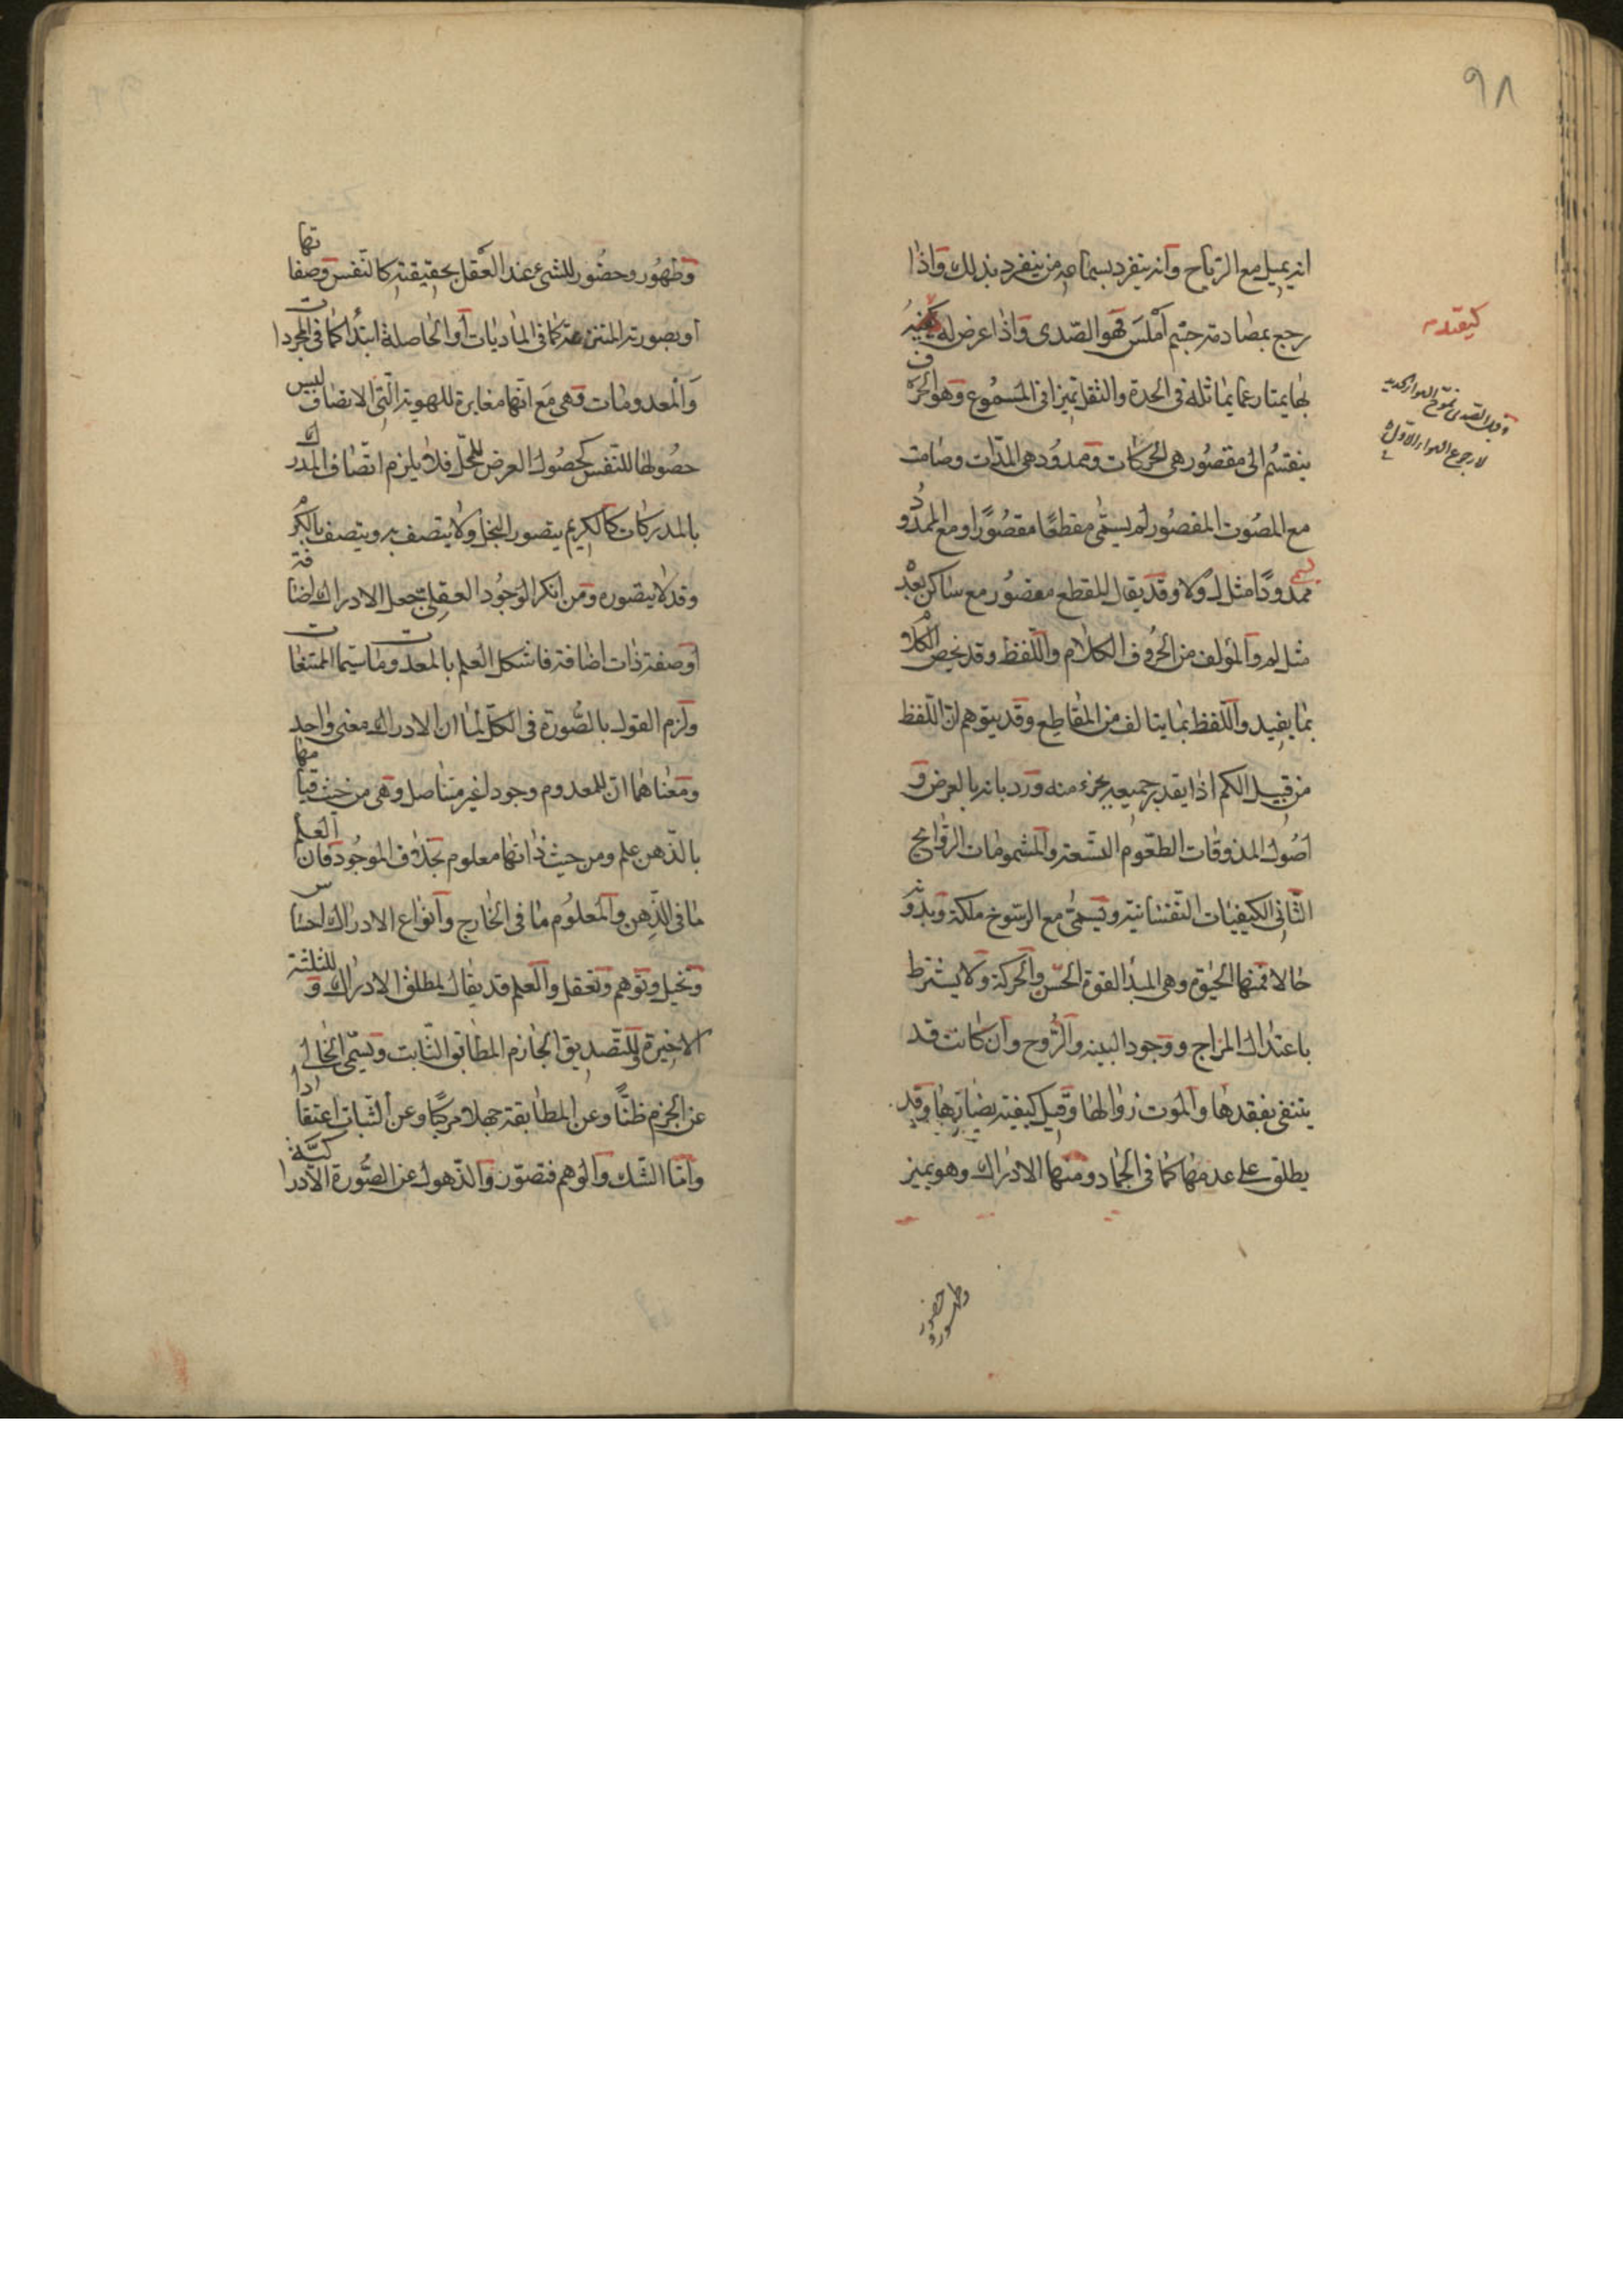 ٩٨
انه يميل مع الرياح وانه ينفرد بسماعه من ينفرد بذلك واذا
رجع بمصادمة جسم املس فهو الصدى واذا عرض له كيفية
بها يمتاز عما يماثله في الحدة والثقل تميزا في المسموع وهو الحرف
ينقسم الى مقصور هى الحركات وممدود هى المدات وصامت
مع المصوت المقصور لم يسمى مقطعا مقصورا ومع الممدود
ممدودا مثل لا ولا وقد يقال للمقطع مقصور مع ساكن بعده
مثل لم والمؤلف من الحروف الكلام واللفظ وقد يخص الكلام
بما يفيد واللفظ بما يتالف من المقاطع وقد يتوهم ان اللفظ
من قبيل الكم اذا يقدر جميعه بجزء منه ورد بانه بالعرض و
اصول المذوقات الطعوم التسعة والمشمومات الروائح
الثاني الكيفيات النفسانية ويسمى مع الرسوخ ملكة وبدونه
حالا فمنها الحيوة وهى المبدأ لقوة الحس والحركة ولا يشترط
باعتدال المزاج ووجود البنيه والروح وان كانت قد
ينتفى بفقدها والموت زوالها وقيل كيفية يضادها وقد
يطلق على عدمها كما في الجماد ومنها الادراك وهو تميز
وقيل الصدى تموج الهواء الجديد
لا رجوع الهواء الاول
وظهور وحضور
وظهور وحضور للشئ عند العقل بحقيقته كالنفس وصفاتها
او بصورته المنتزعة كما في الماديات أو الحاصلة ابتدا كما في المجردات
والمعدومات فهى مع انها مغايرة للهوية التي الاتصاف ليس
حصولها للنفس كحصول العرض للمحل فلا يلزم اتصاف المدرك
بالمدركات كالكريم يتصور البخل ولا يتصف به ويتصف بالكرم
وقد لا يتصوره ومن انكر الوجود العقلي جعل الادراك اضافة
او صفة ذات اضافة فاشكل العلم بالمعدومات سيما الممتنعات
ولزم القول بالصورة في الكل لما ان الادراك معنى واحد
ومعناهما ان للمعدوم وجودا غير متاصل وهى من حيث قيامها
بالذهن علم ومن حيث ذاتها معلوم بخلاف الموجود فان العلم
ما في الذهن والمعلوم ما في الخارج وانواع الادراك احساس
وتخيل وتوهم وتعقل والعلم قد يقال لمطلق الادراك و للثلثة
الاخيرة وللتصديق الجازم المطابق الثابت ويسمى الخالي
عن الجزم ظنا وعن المطابقة جهلا مركبا وعن الثبات اعتقادا
واما الشك والوهم فتصور والذهول عن الصورة الادراكية